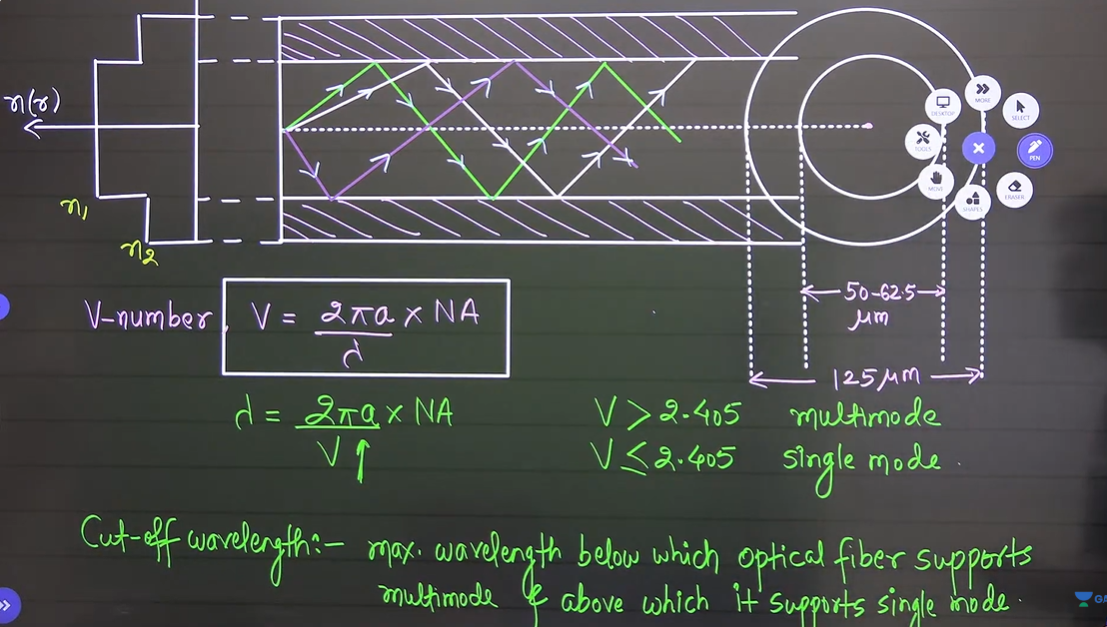 n(r)
n1
n2
DESKTOP
MORE
SELECT
TOOLS
PEN
MOVE
SHAPES
ERASER
50-62.5
μm
125μm
V-number, V = 2πa/λ × NA
λ = 2πa/V↑ × NA
V > 2.405 multimode
V ≤ 2.405 single mode.
Cut-off wavelength:- max. wavelength below which optical fiber supports
multimode & above which it supports single mode.